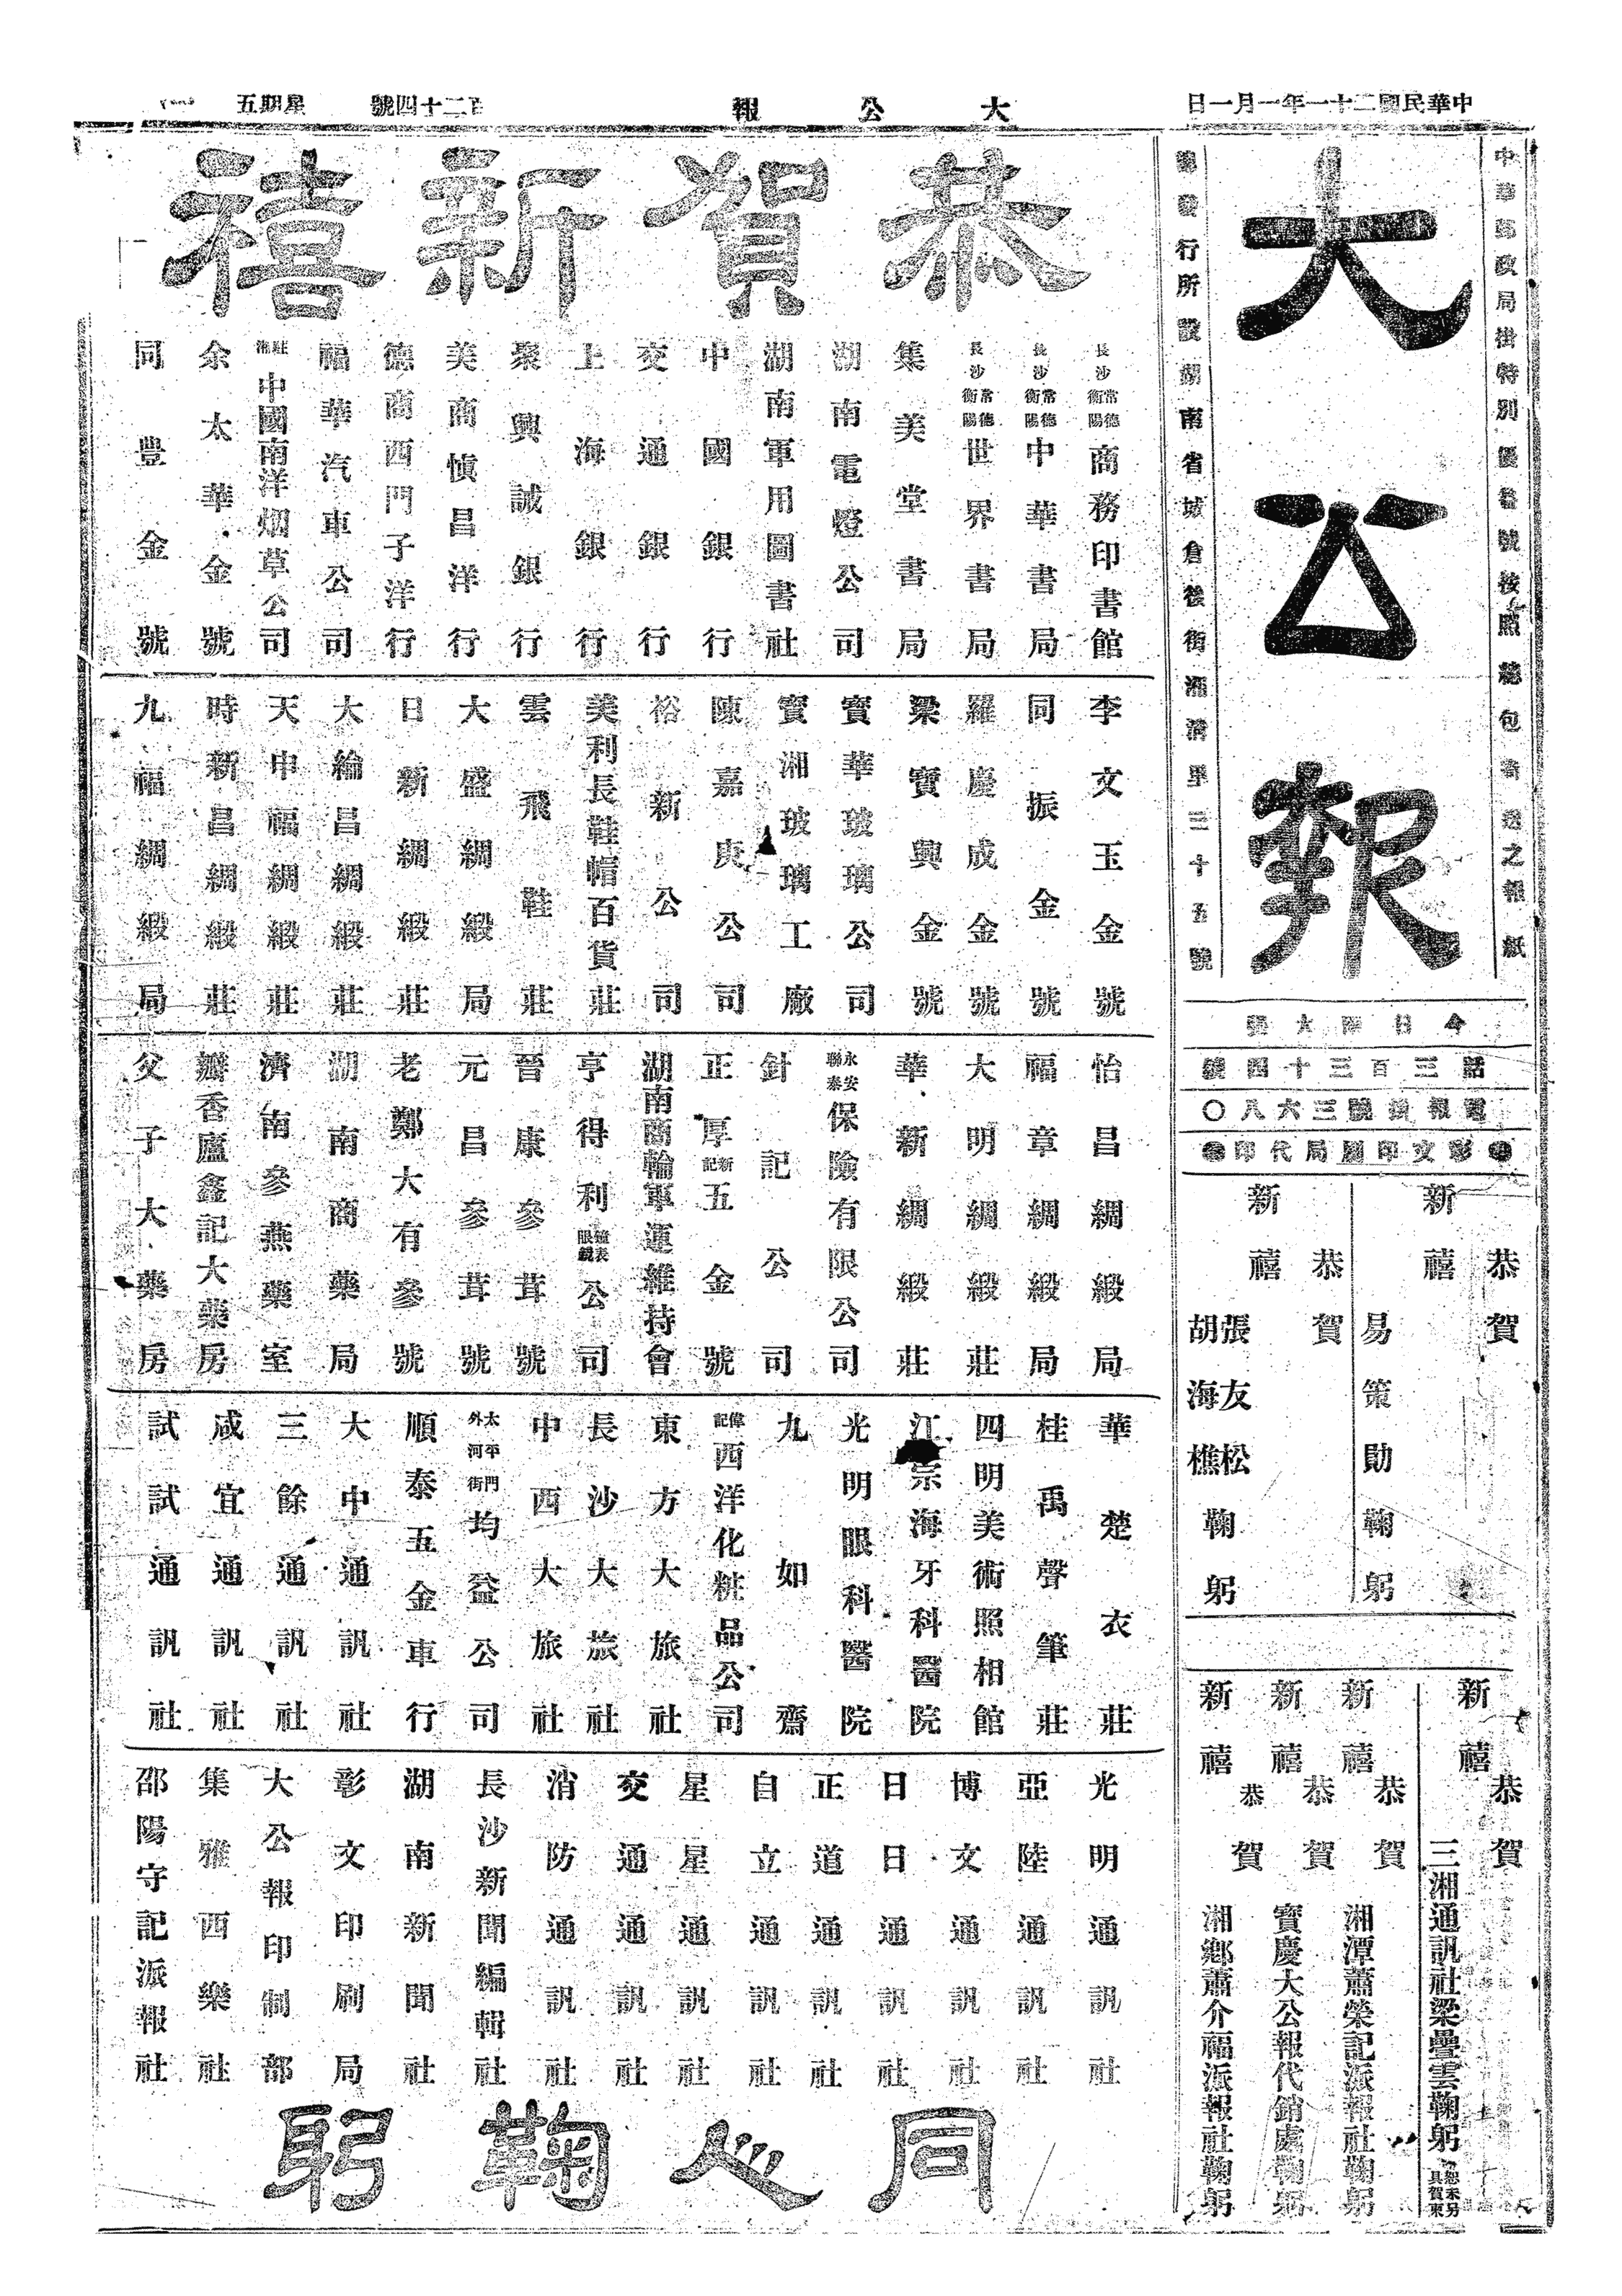 中華民國二十一年一月一日
大公報
百二十四號
星期五
中華郵政局掛特別優待號按照總包寄送之報紙
大公報
發行所設湖南省城倉後街湘清里三十五號
今日四大張
話三百三十四號
電報掛號三六八〇
彰文印刷局代印
恭賀
新禧
易策勛鞠躬
恭賀
新禧
張友松
胡海樵
鞠躬
恭賀
新禧
三湘通訊社梁疊雲鞠躬
恕未另具賀柬
恭賀
新禧
湘潭蕭榮記派報社鞠躬
恭賀
新禧
寶慶大公報代銷處鞠躬
恭賀
新禧
湘鄉蕭介福派報社鞠躬
恭賀新禧
長沙常德衡陽商務印書館
長沙常德衡陽中華書局
長沙常德衡陽世界書局
集美堂書局
湖南電燈公司
湖南軍用圖書社
中國銀行
交通銀行
上海銀行
聚興誠銀行
美商慎昌洋行
德商西門子洋行
福華汽車公司
駐湘中國南洋烟草公司
余太華金號
同豐金號
李文玉金號
同振金號
羅慶成金號
梁寶興金號
寶華玻璃公司
寶湘玻璃工廠
陳嘉庚公司
裕新公司
美利長鞋帽百貨莊
雲飛鞋莊
大盛綢緞局
日新綢緞莊
大綸昌綢緞莊
天申福綢緞莊
時新昌綢緞莊
九福綢緞局
怡昌綢緞局
福章綢緞局
大明綢緞莊
華新綢緞莊
永安聯泰保險有限公司
針記公司
正厚新記五金號
湖南商輪軍運維持會
亨得利鐘表眼鏡公司
晉康參茸號
元昌參茸號
老鄭大有參號
湖南商藥局
濟南參燕藥室
瓣香廬鑫記大藥房
父子大藥房
華楚衣莊
桂禹聲筆莊
四明美術照相館
江宗海牙科醫院
光明眼科醫院
九如齋
偉記西洋化粧品公司
東方大旅社
長沙大旅社
中西大旅社
太平門外河街均益公司
順泰五金車行
大中通訊社
三餘通訊社
咸宜通訊社
試試通訊社
光明通訊社
亞陸通訊社
博文通訊社
日日通訊社
正道通訊社
自立通訊社
星星通訊社
交通通訊社
消防通訊社
長沙新聞編輯社
湖南新聞社
彰文印刷局
大公報印制部
集雅西樂社
邵陽守記派報社
同人鞠躬